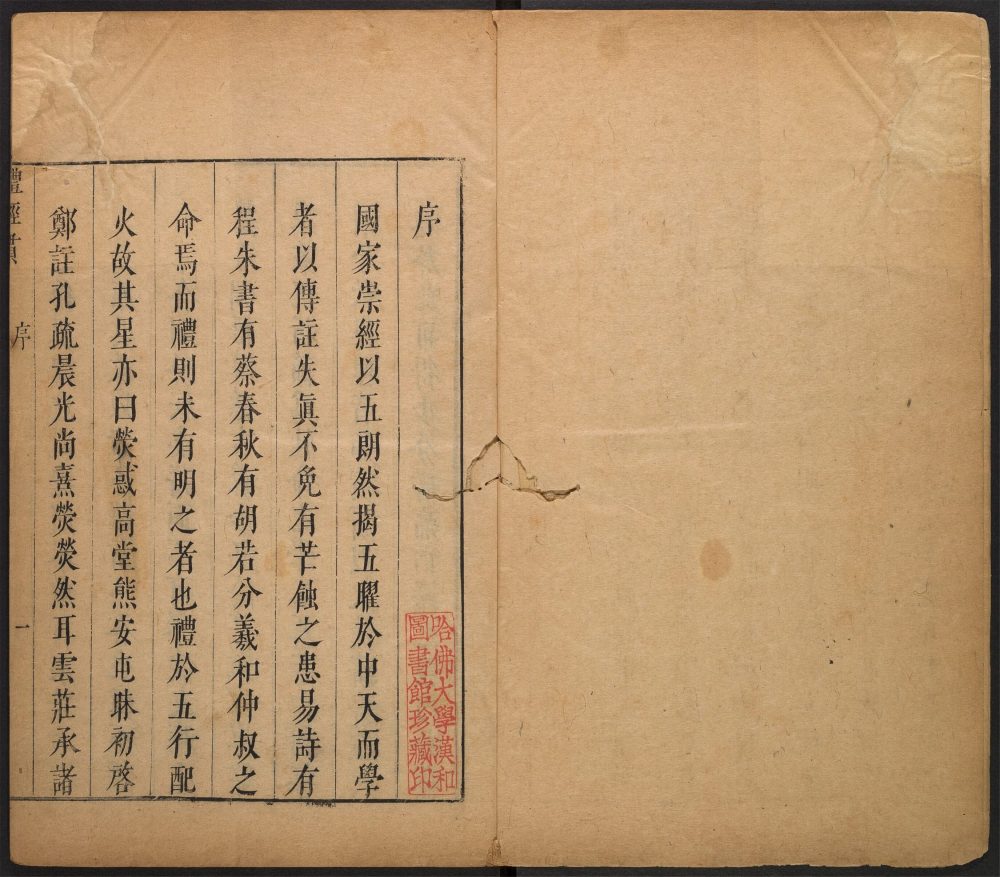 序
國家崇經以五朗然揭五曜於中天而學
者以傳註失眞不免有芒蝕之患易詩有
程朱書有蔡春秋有胡若分羲和仲叔之
命焉而禮則未有明之者也禮於五行配
火故其星亦曰熒惑高堂熊安屯昧初啓
鄭註孔疏晨光尚熹熒熒然耳雲莊承諸
禮經貫
序
一
哈佛大學漢和
圖書館珍藏印